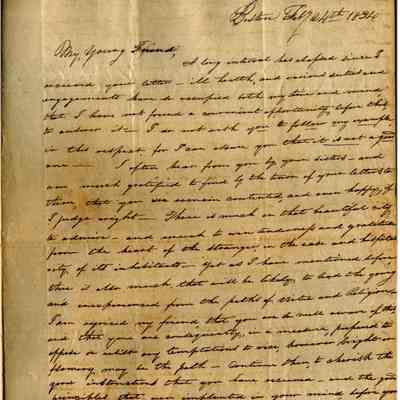 Boston Feb 24th 1834
My Young Friend,
A long interval has elapsed since I
received your letter - ill health, and various duties and
engagements have so occupied both my time and mind
that I have not found a convenient opportunity, before this,
to answer it - I do not wish you to follow my example
in this respect for I am aware you that it is not a good
one - I often hear from you by your sisters - and
am much gratified to find by the tenor of your letters to
them, that you are remain contented, and even happy, if
I judge right - There is much in that beautiful city
to admire - and much to win tenderness and gratitude
from the heart of the stranger, in the ease and hospital
ity of its inhabitants - Yet as I have mentioned before
there is also much that will be likely, to lead the young
and inexperienced from the paths of virtue and Religion
I am rejoiced my friend that you are so well aware of this
and that you are consequently, in a measure prepared to
oppose or resist any temptations to error, however bright or
flowery may be the path - continue then, to cherish the
good instructions that you have received - and the good
principles that were implanted in your mind before you